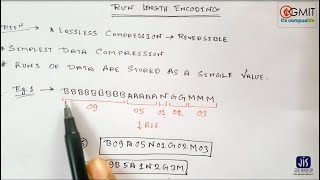 RUN LENGTH ENCODING
GMIT
It's campuslife
* LOSSLESS COMPRESSION → REVERSIBLE
* SIMPLEST DATA COMPRESSION
* RUNS OF DATA ARE STORED AS A SINGLE VALUE.
Eg.1 → BBBBBBBBBAAAAANGGMMM
09 05 01 02 03
↓ RLE
B09A05N01G02M03
9B5A1N2G3M
JIS
JIS GROUP